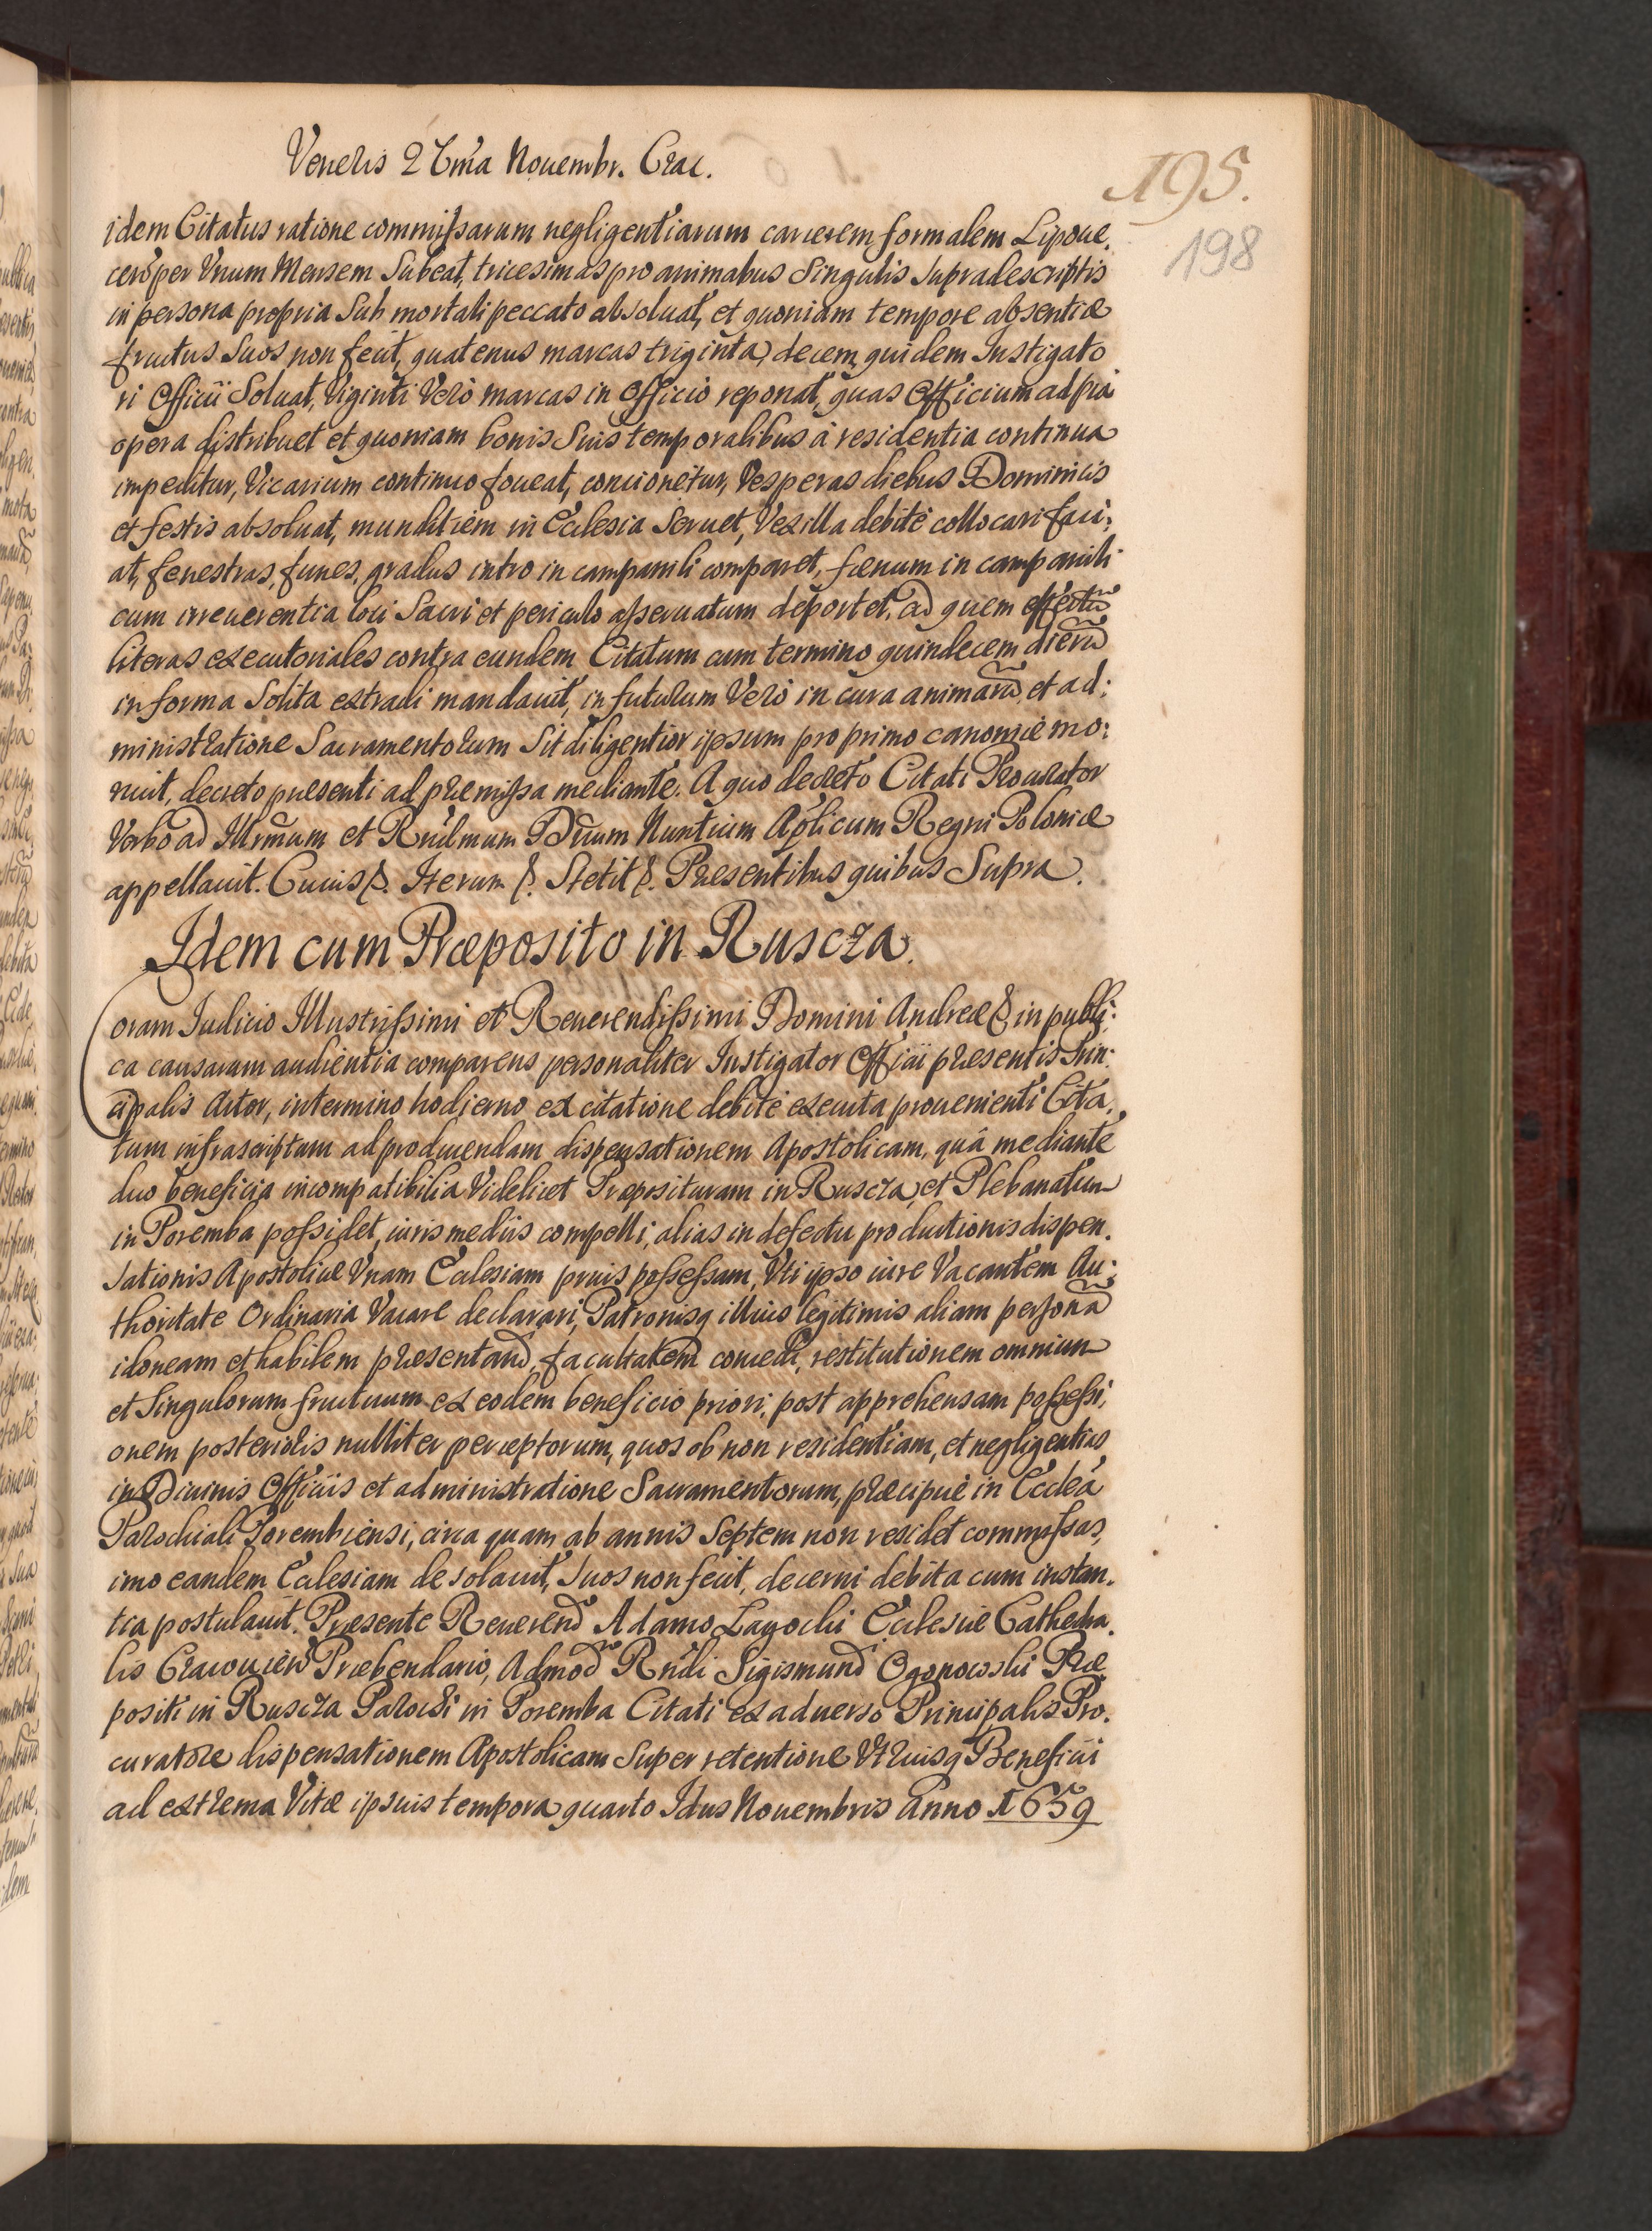 Veneris 27ma Nouembr. Crac.
195.
198
idem Citatus ratione commißarum negligentiarum carcerem formalem Lipoue,
cen̄ per Vnum Mensem Subeat, tricesimas pro animabus Singulis Supradescriptis
in persona propria Sub mortali peccato absoluat, et quoniam tempore absentiæ
fructus Suos non fecit, quatenus marcas triginta, decem quidem Instigato
ri Officii Soluat, Viginti Verò marcas in Officio reponat, quas Officium ad pia
opera distribuet et quoniam bonis Suis temporalibus à residentia continua
impeditur, Vicarium continuo foueat, concionetur, Vesperas diebus Dominicis
et festis absoluat, munditiem in Ecclesia Seruet, Vexilla debitè collocari faci:
at, fenestras, funes, gradus intro in campanili comparet, fœnum in campanili
cum irreuerentia loci Sacri et periculo aßeruatum deportet, ad quem effectū
literas executoriales contra eundem Citatum cum termino quindecem dierū
in forma Solita extradi mandauit, in futurum Verò in cura animarū et ad:
ministratione Sacramentorum Sit diligentior ipsum pro primo canonicè mo:
nuit, decreto præsenti ad præmißa mediante. A quo decreto Citati Procurator
Verbo ad Illrm̄um et Rn̄dmum Dn̄um Nuntium Ap̄licum Regni Poloniæ
appellauit. Cuius &. Iterum &. Stetit &. Præsentibus quibus Supra.
Idem cum Præposito in Ruscza.
Coram Iudicio Illustrißimi et Reuerendißimi Domini Andreæ & in publi:
ca causarum audientia comparens personaliter Instigator Officii præsentis Prin:
cipalis Actor, in termino hodierno ex citatione debitè executa prouenienti Cita,
tum infrascriptum ad producendam dispensationem Apostolicam, quâ mediante
duo beneficia incompatibilia Videlicet Præposituram in Ruscza, et Plebanatum
in Poremba poßidet, iuris mediis compelli, alias in defectu productionis dispen.
sationis Apostolicæ Vnam Ecclesiam prius poßeßam, Vti ipso iure Vacantem Au:
thoritate Ordinaria Vacare declarari, Patronisq illius legitimis aliam personā
idoneam et habilem præsentand, facultatem concedi, restitutionem omnium
et Singulorum fructuum ex eodem beneficio priori, post apprehensam poßeßi,
onem posterioris nulliter perceptorum, quos ob non residentiam, et negligentias
in Diuinis Officiis et administratione Sacramentorum, præcipuè in Eccleâ
Parochiali Porembiensi, circa quam ab annis Septem non residet commißas,
imo eandem Ecclesiam desolauit, Suos non fecit, decerni debita cum instan.
tia postulauit. Præsente Reuerend Adamo Łagocki Ecclesiæ Cathedra.
lis Cracouien̄ Præbendario, Admod Rn̄di Sigismund Ogonowski Præ
positi in Ruscza Parochi in Poremba Citati ex aduerso Principalis Pro.
curatore dispensationem Apostolicam Super retentione Vtriusq Beneficii
ad extrema Vitæ ipsius tempora quarto Idus Nouembris Anno 1659